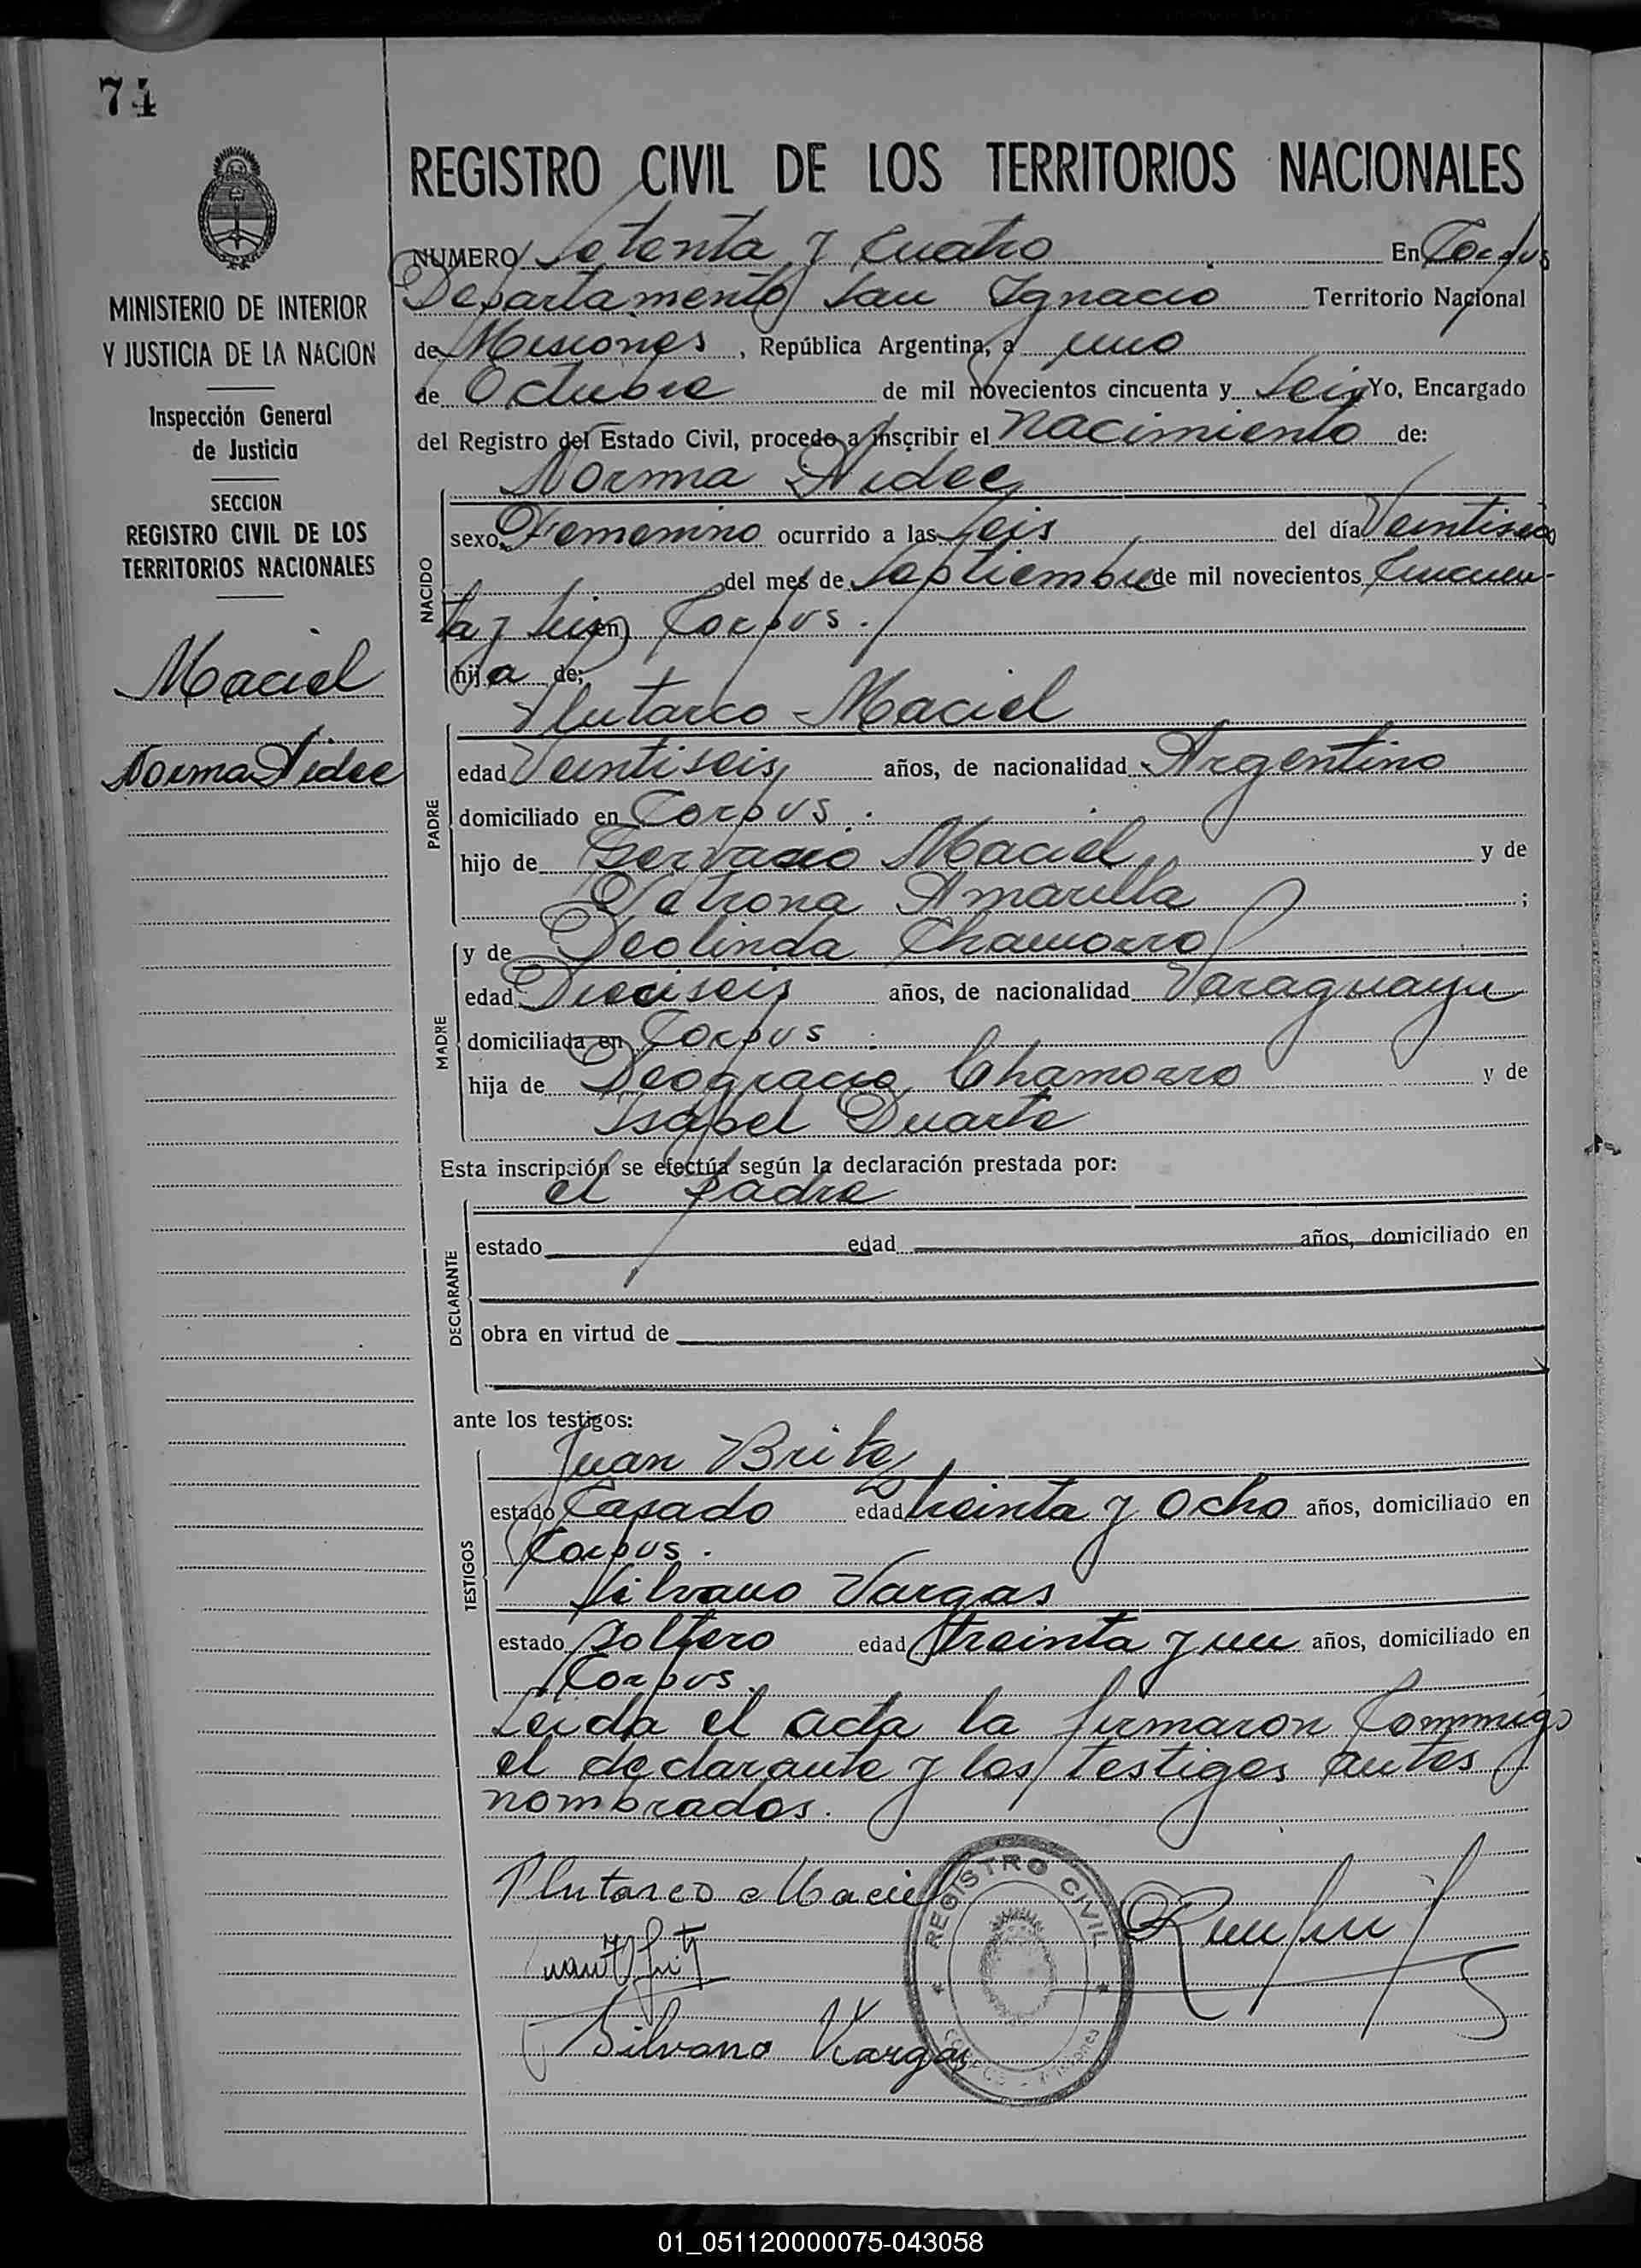 74
REGISTRO CIVIL DE LOS TERRITORIOS NACIONALES
MINISTERIO DE INTERIOR
Y JUSTICIA DE LA NACION
Inspección General
de Justicia
SECCION
REGISTRO CIVIL DE LOS
TERRITORIOS NACIONALES
Maciel
Norma Aidee
NUMERO Setenta y Cuatro En Corpus
Departamento San Ignacio Territorio Nacional
de Misiones, República Argentina, a uno
de Octubre de mil novecientos cincuenta y Seis Yo, Encargado
del Registro del Estado Civil, procedo a inscribir el nacimiento de:
Norma Aidee
NACIDO
sexo Femenino ocurrido a las Seis del día Veintiseis
del mes de Septiembre de mil novecientos Cincuen-
ta y Seis en Corpus.
hija de:
Plutarco Maciel
PADRE
edad Veintiseis años, de nacionalidad Argentino
domiciliado en Corpus.
hijo de Gervacio Maciel y de
Petrona Amarilla ;
y de Deolinda Chamorro
MADRE
edad Dieciseis años, de nacionalidad Paraguaya
domiciliada en Corpus
hija de Deogracia Chamorro y de
Isabel Duarte
Esta inscripción se efectúa según la declaración prestada por:
el padre
DECLARANTE
estado edad años, domiciliado en
obra en virtud de
ante los testigos:
TESTIGOS
Juan Brite
estado Casado edad treinta y Ocho años, domiciliado en
Corpus.
Silvano Vargas
estado Soltero edad treinta y un años, domiciliado en
Corpus.
Leida el acta la firmaron Commigo
el declarante y los testigos antes
nombrados.
Plutarco Maciel
REGISTRO CIVIL
Silvano Vargas
01_051120000075-043058